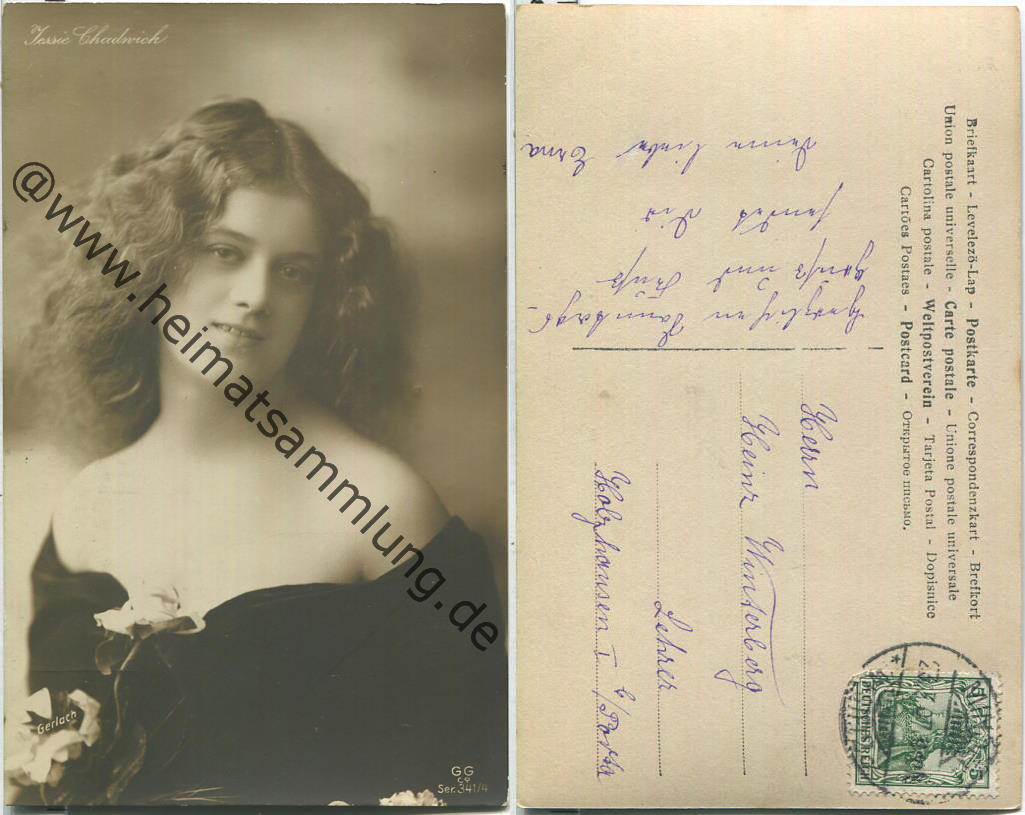 Jessie Chadwich
@www.heimatsammlung.de
Gerlach
GG
Co
Ser. 341/4
Briefkaart - Levelező-Lap - Postkarte - Correspondenzkart - Brefkort
Union postale universelle - Carte postale - Unione postale universale
Cartolina postale - Weltpostverein - Tarjeta Postal - Dopisnice
Cartões Postaes - Postcard - Открытое письмо.
Herzlichen
Gruß und Kuß
sendet Dir
Deine liebe Erna
Herrn
Heinz Winterberg
Lehrer
Holzhausen I b/Porta
DEUTSCHES REICH
5